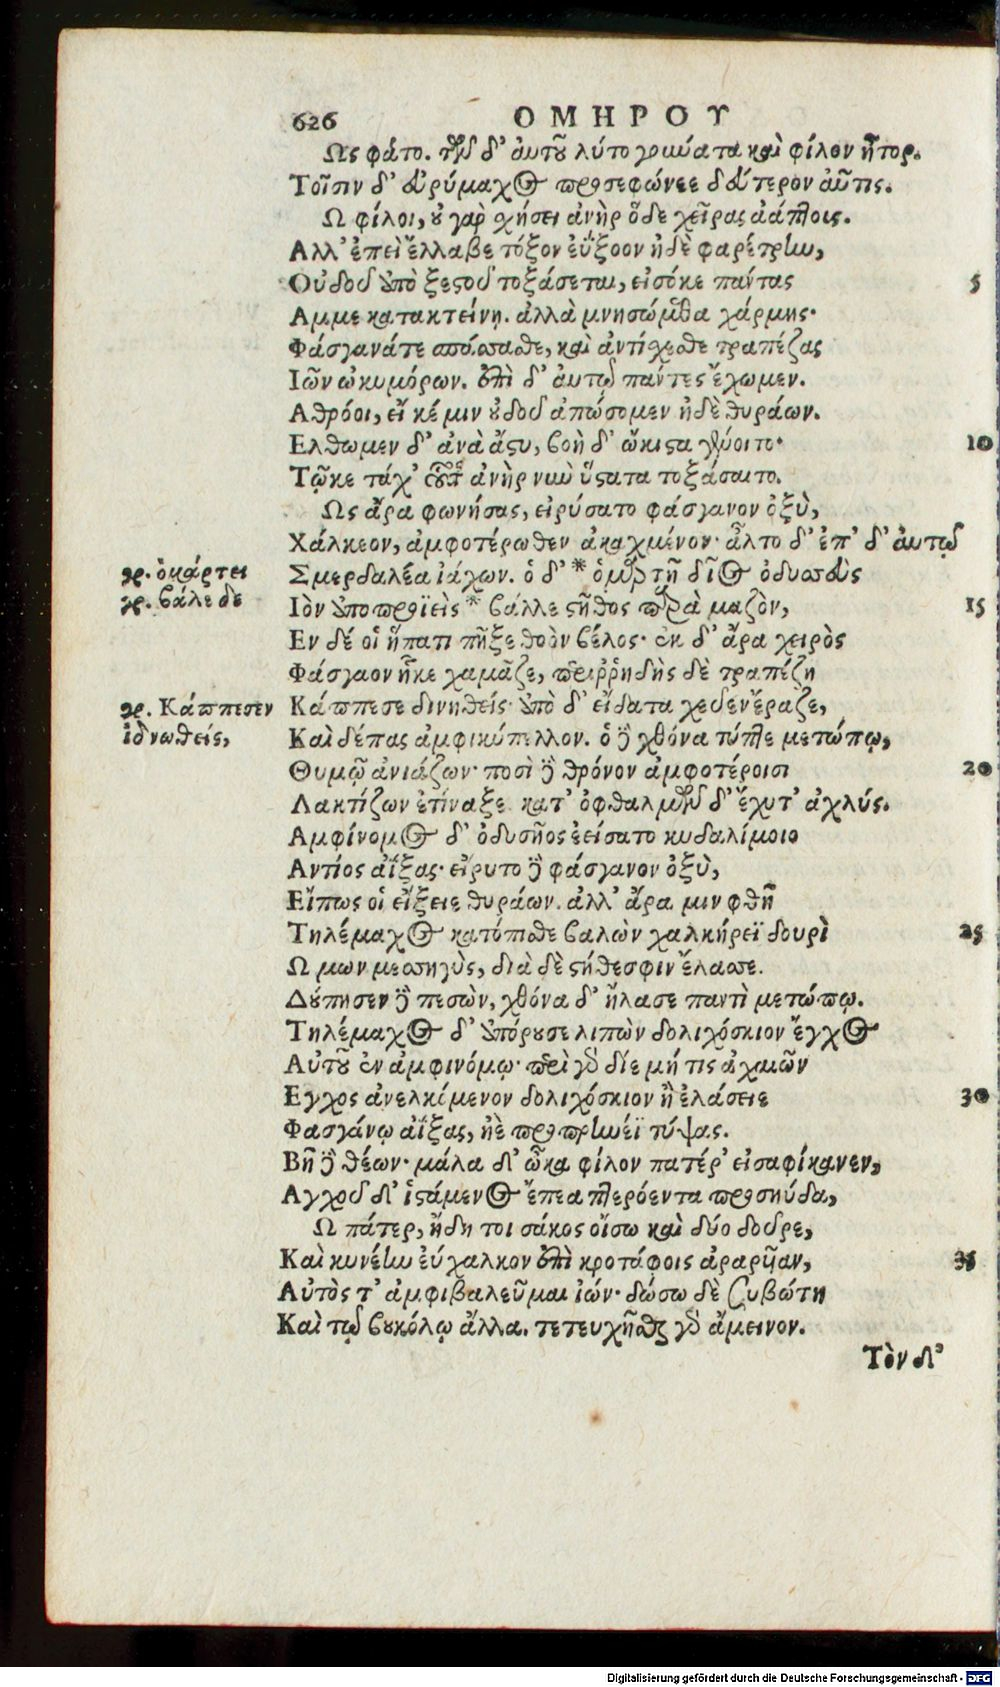 626 ΟΜΗΡΟΥ
Ως φάτο. τῶν δ' αὐτοῦ λύτο γούνατα καὶ φίλον ἦτορ.
Τοῖσιν δ' εὐρύμαχος προσεφώνεε δεύτερον αὖτις.
Ω φίλοι, οὐ γὰρ σχήσει ἀνὴρ ὅδε χεῖρας ἀάπτοις.
Αλλ' ἐπεὶ ἔλλαβε τόξον ἐΰξοον ἠδὲ φαρέτρην,
Οὐδοῦ ὑπὸ ξεστοῦ τοξάσεται, εἰσόκε πάντας 5
Αμμε κατακτείνῃ. ἀλλὰ μνησώμεθα χάρμης·
Φάσγανάτε σπάσασθε, καὶ ἀντίσχεσθε τραπέζας
Ιῶν ὠκυμόρων. ἐπὶ δ' αὐτῷ πάντες ἔχωμεν.
Αθρόοι, εἴ κέ μιν οὐδοῦ ἀπώσομεν ἠδὲ θυράων.
Ελθωμεν δ' ἀνὰ ἄστυ, βοὴ δ' ὤκιστα γένοιτο· 10
Τῷκε τάχ' οὗτος ἀνὴρ νῦν ὕστατα τοξάσαιτο.
Ως ἄρα φωνήσας, εἰρύσατο φάσγανον ὀξὺ,
Χάλκεον, ἀμφοτέρωθεν ἀκαχμένον· ἆλτο δ' ἐπ' δ' αὐτῷ
γρ. ὁκάρτει Σμερδαλέα ἰάχων. ὁ δ' * ὁμαρτῇ δῖος ὀδυσσεὺς
γρ. βάλε δὲ Ιὸν ὑποπροϊεὶς * βάλλε στῆθος παρὰ μαζὸν, 15
Εν δέ οἱ ἥπατι πῆξε θοὸν βέλος· ἐκ δ' ἄρα χειρὸς
Φάσγαον ἧκε χαμᾶζε, περιῤῥηδὴς δὲ τραπέζῃ
γρ. Κάππεσεν Κάππεσε δινηθείς· ὑπὸ δ' εἴδατα χεῦεν ἔραζε,
ἰδνωθείς, Καὶ δέπας ἀμφικύπελλον. ὁ δὲ χθόνα τύπτε μετώπῳ,
Θυμῷ ἀνιάζων· ποσὶ δὲ θρόνον ἀμφοτέροισι 20
Λακτίζων ἐτίναξε κατ' ὀφθαλμῶν δ' ἔχυτ' ἀχλύς.
Αμφίνομος δ' ὀδυσῆος ἐείσατο κυδαλίμοιο
Αντίος ἀΐξας· εἴρυτο δὲ φάσγανον ὀξὺ,
Εἴπως οἱ εἴξειε θυράων. ἀλλ' ἄρα μιν φθῆ
Τηλέμαχος κατόπισθε βαλὼν χαλκήρεϊ δουρὶ 25
Ω μων μεσσηγὺς, διὰ δὲ στήθεσφιν ἔλασσε.
Δούπησεν δὲ πεσὼν, χθόνα δ' ἤλασε παντὶ μετώπῳ.
Τηλέμαχος δ' ὑπόρουσε λιπὼν δολιχόσκιον ἔγχος
Αὐτοῦ ἐν ἀμφινόμῳ· περὶ γὰρ δίε μή τις ἀχαιῶν
Εγχος ἀνελκόμενον δολιχόσκιον ἢ ἐλάσειε 30
Φασγάνῳ ἀΐξας, ἠὲ προπρηνέϊ τύψας.
Βῆ δὲ θέων· μάλα δ' ὦκα φίλον πατέρ' εἰσαφίκανεν,
Αγχοῦ δ' ἱστάμενος ἔπεα πτερόεντα προσηύδα,
Ω πάτερ, ἤδη τοι σάκος οἴσω καὶ δύο δοῦρε,
Καὶ κυνέην εὔχαλκον ἐπὶ κροτάφοις ἀραρῆαν, 35
Αὐτὸς τ' ἀμφιβαλεῦμαι ἰών· δώσω δὲ συβώτῃ
Καὶ τῷ βουκόλῳ ἄλλα. τετευχῆσθαι γὰρ ἄμεινον.
Τὸν δ'
Digitalisierung gefördert durch die Deutsche Forschungsgemeinschaft - DFG